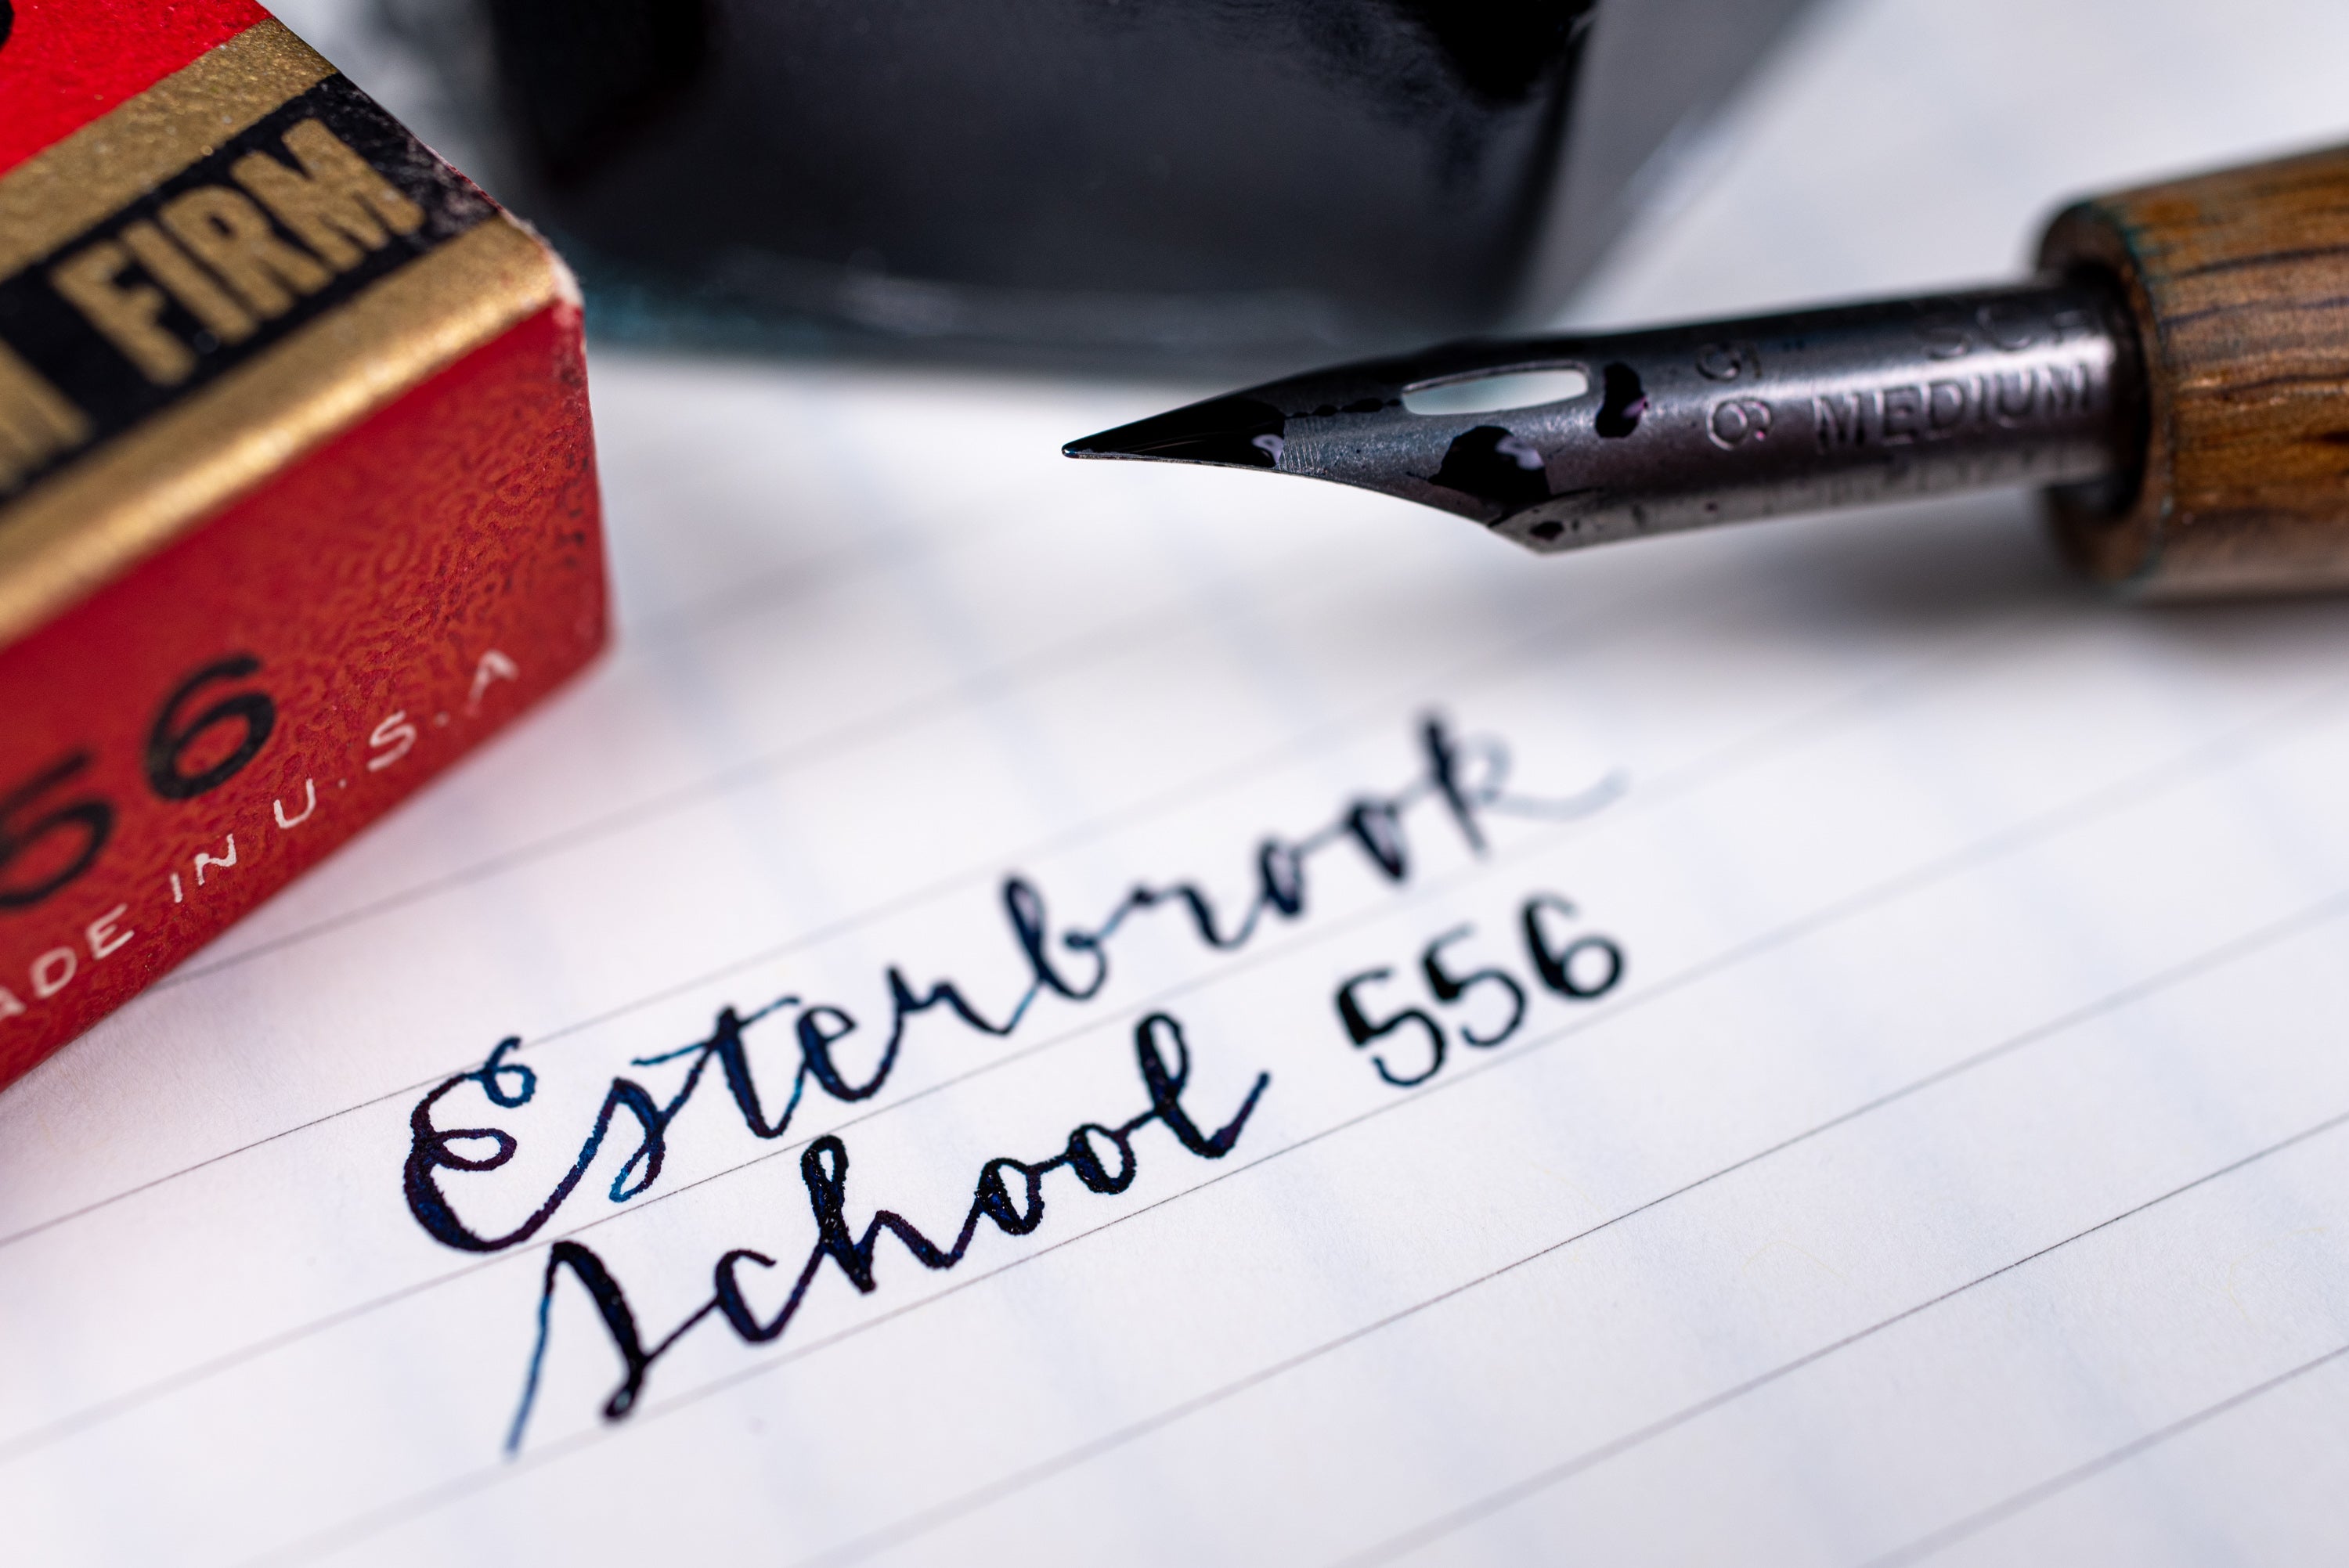 FIRM
56
MADE IN U.S.A
56 MEDIUM
Esterbrook
School 556